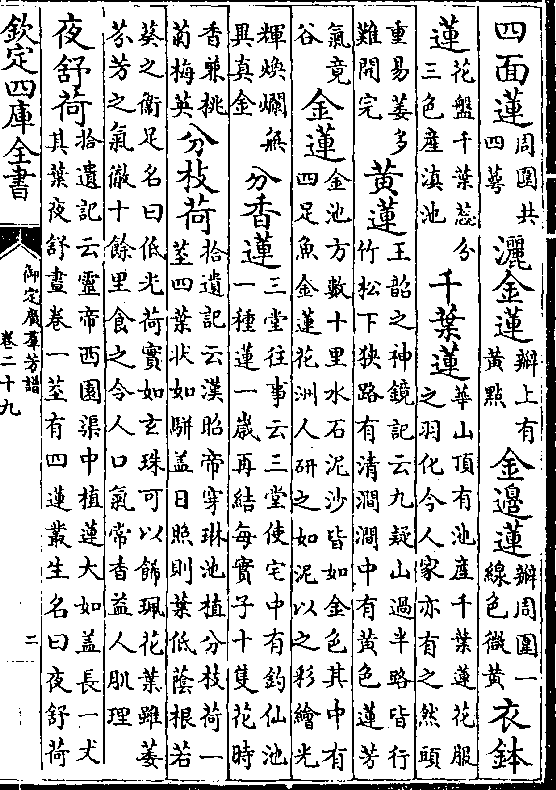 四面蓮周圍共四蕚 灑金蓮瓣上有黃點 金邊蓮瓣周圍一線色微黃 衣鉢
蓮花盤千葉蕊分三色産滇池 千葉蓮華山頂有池產千葉蓮花服之羽化今人家亦有之然頭
重易萎多難開完 黃蓮王韶之神鏡記云九疑山過半路皆行竹松下狹路有清澗澗中有黃色蓮芳
氣竟谷 金蓮金池方數十里水石泥沙皆如金色其中有四足魚金蓮花洲人研之如泥以之彩繪光
輝煥爛無異真金 分香蓮三堂往事云三堂使宅中有釣仙池一種蓮一歲再結每實子十隻花時
香兼桃菊梅英 分枝荷拾遺記云漢昭帝穿琳池植分枝荷一莖四葉狀如駢蓋日照則葉低蔭根若
葵之衛足名曰低光荷實如玄珠可以飾珮花葉雖萎芬芳之氣徹十餘里食之令人口氣常香益人肌理
夜舒荷拾遺記云靈帝西園渠中植蓮大如蓋長一丈其葉夜舒晝卷一莖有四蓮叢生名曰夜舒荷
欽定四庫全書
御定廣羣芳譜
卷二十九
二